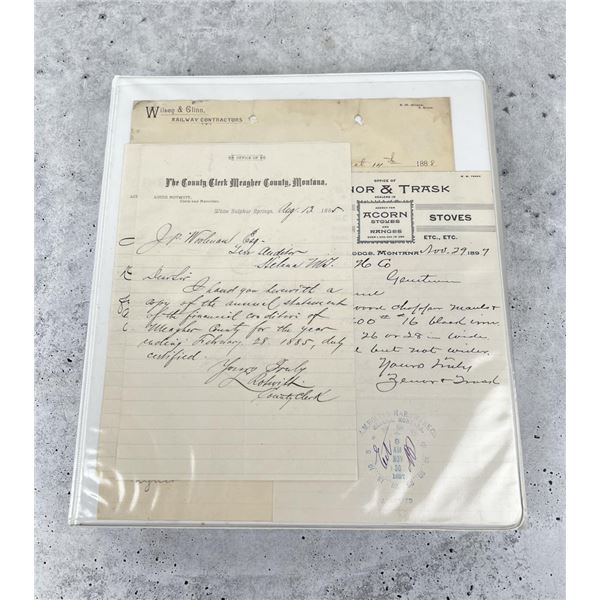 Wilson & Glinn,
RAILWAY CONTRACTORS
14th 1888
OFFICE OF
The County Clerk Meagher County, Montana.
White Sulphur Springs, Aug 13 1885
J. P. Woolman Esq.
Terr Auditor
Helena M.T.
Dear Sir
I hand you herewith a
copy of the annual statement
of the financial condition of
Meagher County for the year
ending February 28, 1885, duly
certified.
Yours Truly
County Clerk
OFFICE OF
NOR & TRASK
DEALERS IN
AGENCY FOR
ACORN
STOVES
AND
RANGES
STOVES
ETC., ETC.
MONTANA, Nov. 29, 1897
Co
Gentlemen
wood chopper mauls &
00 # 16 black iron
26 or 28 in wide
but not wider.
Yours Truly
Zenor & Trask
AM
NOV
30
1897